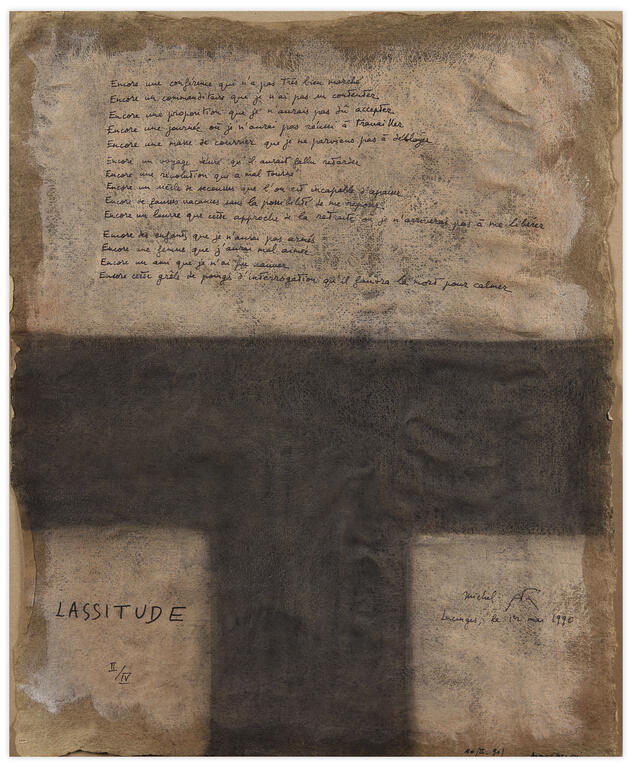 Encore une conférence qui n'a pas très bien marché
Encore un commanditaire que je n'ai pas su contenter
Encore une proposition que je n'aurais pas dû accepter
Encore une journée où je n'aurai pas réussi à travailler
Encore une masse de courrier que je ne parviens pas à déblayer
Encore un voyage qu'il aurait fallu retarder
Encore une révolution qui a mal tourné
Encore un siècle de secousses que l'on est incapable d'apaiser
Encore de fausses vacances sans la possibilité de me reposer
Encore un leurre que cette approche de la retraite où je n'arriverai pas à me libérer
Encore des enfants que je n'aurai pas armés
Encore une femme que j'aurai mal aimée
Encore un ami que je n'ai pu sauver
Encore cette grêle de poings d'interrogation qu'il faudra la mort pour calmer
LASSITUDE
II/IV
Michel
Lucinges, le 1er mai 1990